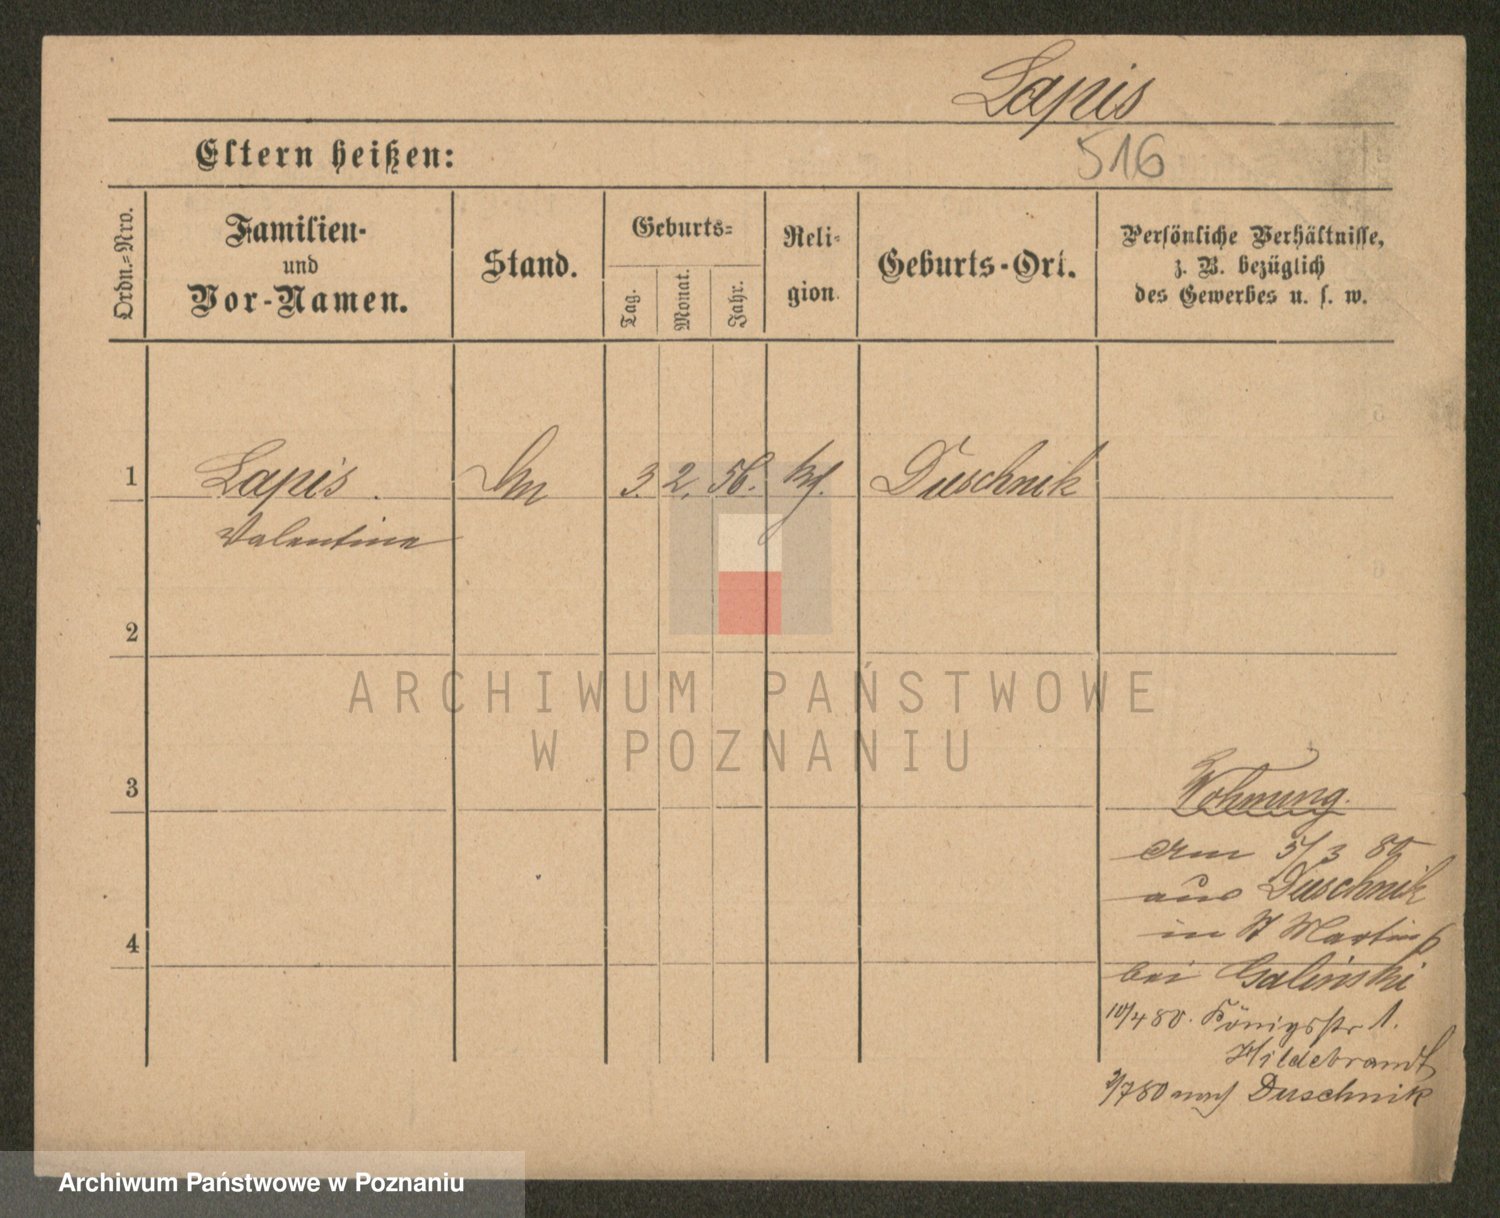 Lapis
Eltern heißen:
516
Ordn.=Nro.
Familien-
und
Vor-Namen.
Stand.
Geburts=
Tag.
Monat.
Jahr.
Reli-
gion
Geburts-Ort.
Persönliche Verhältnisse,
z. B. bezüglich
des Gewerbes u. s. w.
1 Lapis. 3. 2. 56. Duschnik
Valentine
2
3
Wohnung.
4
am 5/3 80
aus Duschnik
in St Martin
bei Galinski
10/4 80. Königsstr 1.
Hildebrandt
2/7 80 nach Duschnik
ARCHIWUM PAŃSTWOWE
W POZNANIU
Archiwum Państwowe w Poznaniu